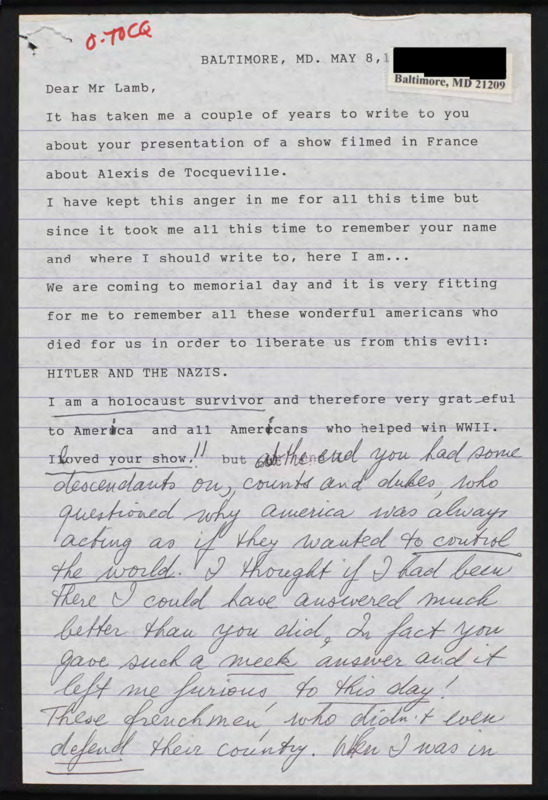 O-TOCQ
BALTIMORE, MD. MAY 8,1
Baltimore, MD 21209
Dear Mr Lamb,
It has taken me a couple of years to write to you
about your presentation of a show filmed in France
about Alexis de Tocqueville.
I have kept this anger in me for all this time but
since it took me all this time to remember your name
and where I should write to, here I am...
We are coming to memorial day and it is very fitting
for me to remember all these wonderful americans who
died for us in order to liberate us from this evil:
HITLER AND THE NAZIS.
I am a holocaust survivor and therefore very grat eful
to America and all Americans who helped win WWII.
I loved your show.!! but at the end you had some
descendants on, counts and dukes, who
questioned why america was always
acting as if they wanted to control
the world. I thought if I had been
there I could have answered much
better than you did. In fact you
gave such a meek answer and it
left me furious to this day!
These frenchmen, who didn't even
defend their country. When I was in